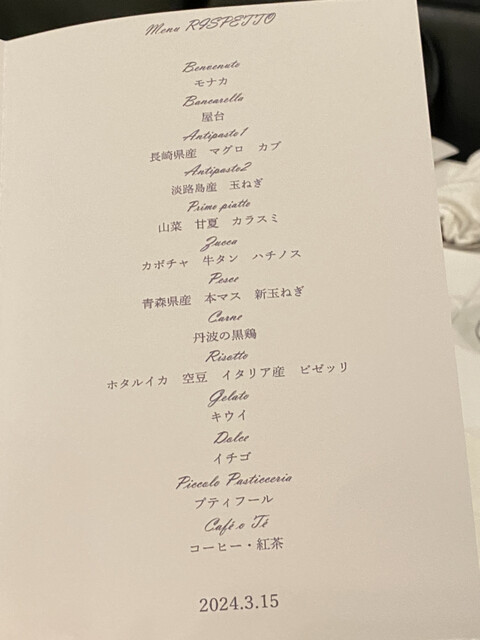 Menu RISPETTO
Benvenuto
モナカ
Bancarella
屋台
Antipasto1
長崎県産　マグロ　カブ
Antipasto2
淡路島産　玉ねぎ
Primo piatto
山菜　甘夏　カラスミ
Zucca
カボチャ　牛タン　ハチノス
Pesce
青森県産　本マス　新玉ねぎ
Carne
丹波の黒鶏
Risotto
ホタルイカ　空豆　イタリア産　ピゼッリ
Gelato
キウイ
Dolce
イチゴ
Piccolo Pasticceria
プティフール
Café o Té
コーヒー・紅茶
2024.3.15